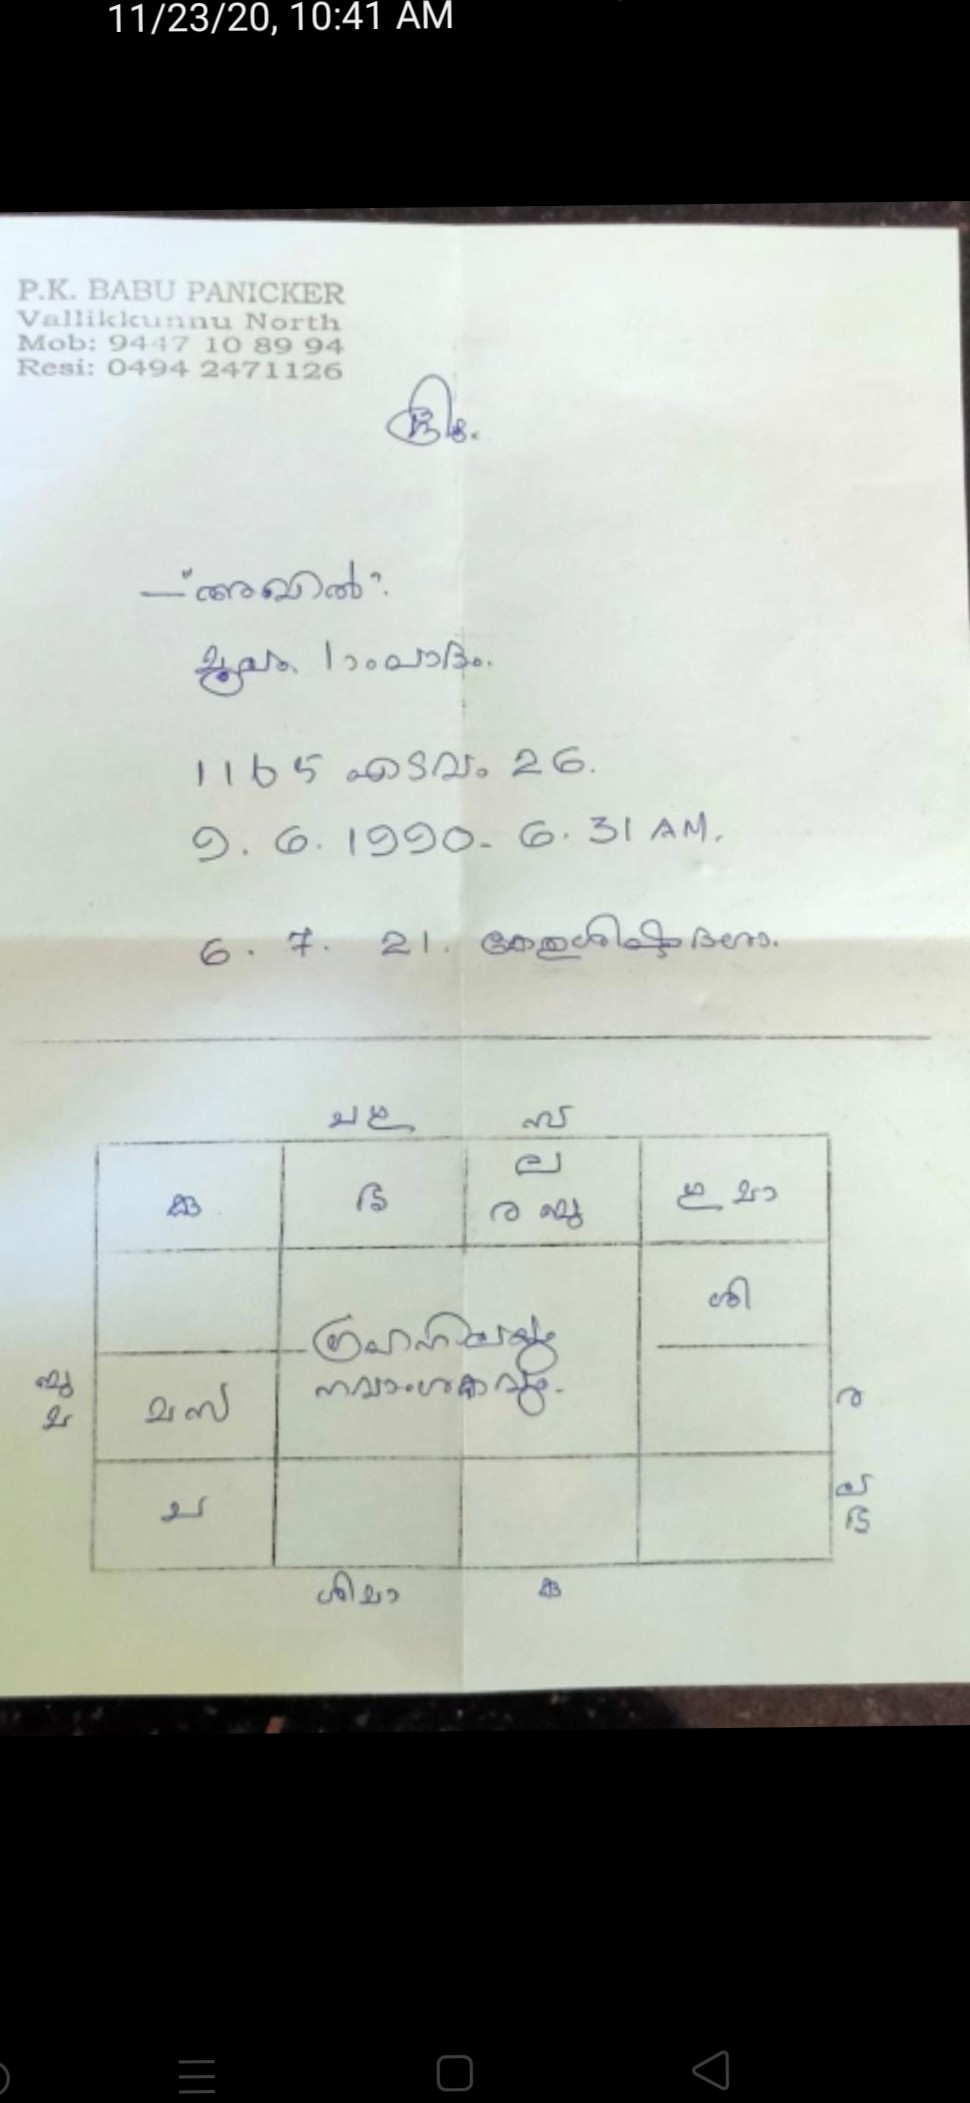 11/23/20, 10:41 AM
P.K. BABU PANICKER
Vallikkunnu North
Mob: 9447 10 89 94
Resi: 0494 2471126
ശ്രീഃ.
—"അഖിൽ".
മൂലം 1ാംപാദം.
1165 എടവം 26.
9. 6. 1990- 6. 31 AM.
6. 7. 21. കേതുശിഷ്ട ദശാ.
സ
കു
ല
ര ബു
ശി
ഗ്രഹനിലയും
നവാംശകവും.
ബു
മ സ
ര
ല
ശി മാ
കു